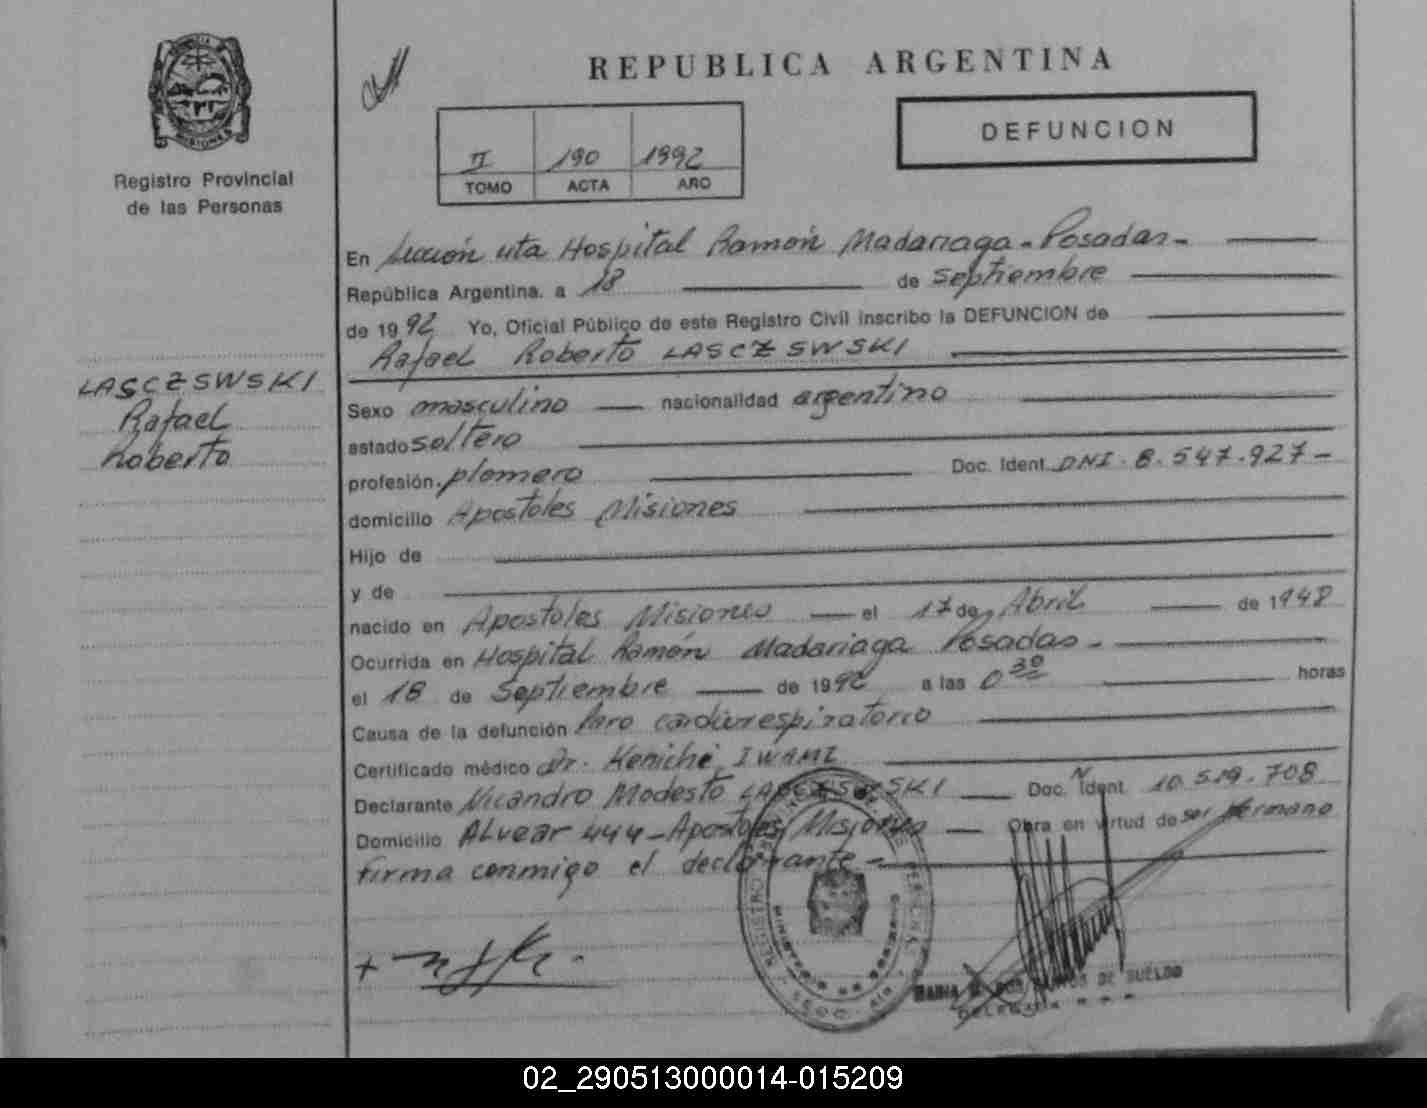 REPUBLICA ARGENTINA
DEFUNCION
MISIONES
Registro Provincial
de las Personas
II 190 1992
TOMO ACTA AÑO
En Sección uta Hospital Ramón Madariaga - Posadas -
República Argentina. a 18 de septiembre
de 1992 Yo, Oficial Público de este Registro Civil inscribo la DEFUNCION de
Rafael Roberto LASCZSWSKI
LASCZSWSKI
Rafael
Roberto
Sexo masculino nacionalidad argentino
estado soltero
profesión. plomero Doc. Ident. DNI. 8.547.927 -
domicilio Apostoles Misiones
Hijo de
y de
nacido en Apostoles Misiones el 17 de Abril de 1948
Ocurrida en Hospital Ramón Madariaga Posadas -
el 18 de Septiembre de 1992 a las 0 30 horas
Causa de la defunción Paro cardiorespiratorio
Certificado médico Dr. Keniche IWAMI
Declarante Nicandro Modesto LASCZSWSKI Doc. Ident. N 10.519.708
Domicilio ALvear 444 - Apostoles Misiones Obra en virtud de ser Hermano
firma conmigo el declarante -
DE SUELDO
02_290513000014-015209